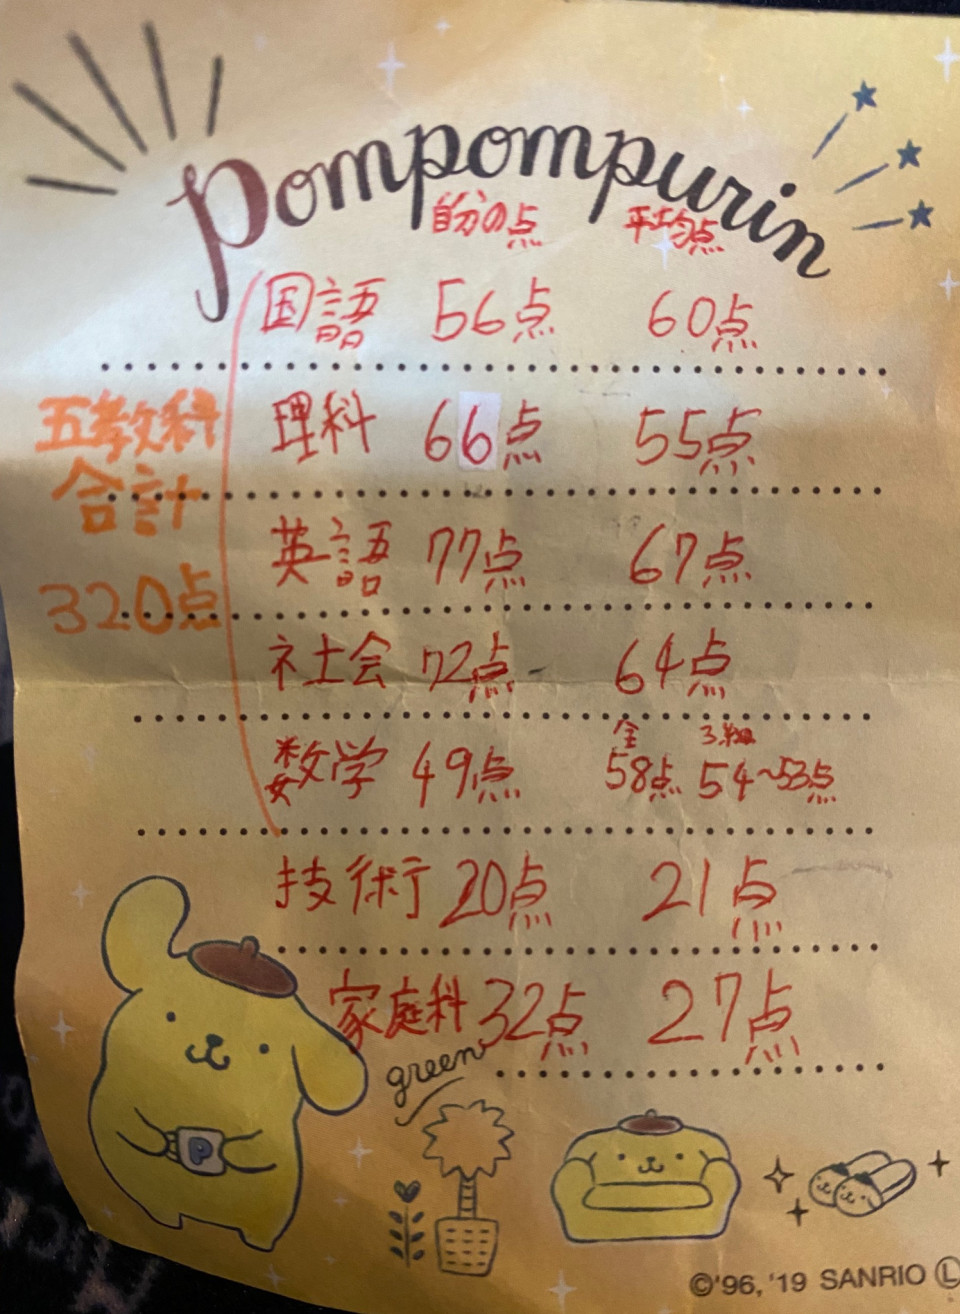 Pompompurin
自分の点 平均点
国語 56点 60点
理科 66点 55点
五教科
合計
320点
英語 77点 67点
社会 72点 64点
全 3組
数学 49点 58点 54~53点
技術 20点 21点
家庭科 32点 27点
green
P
©'96, '19 SANRIO Ⓛ